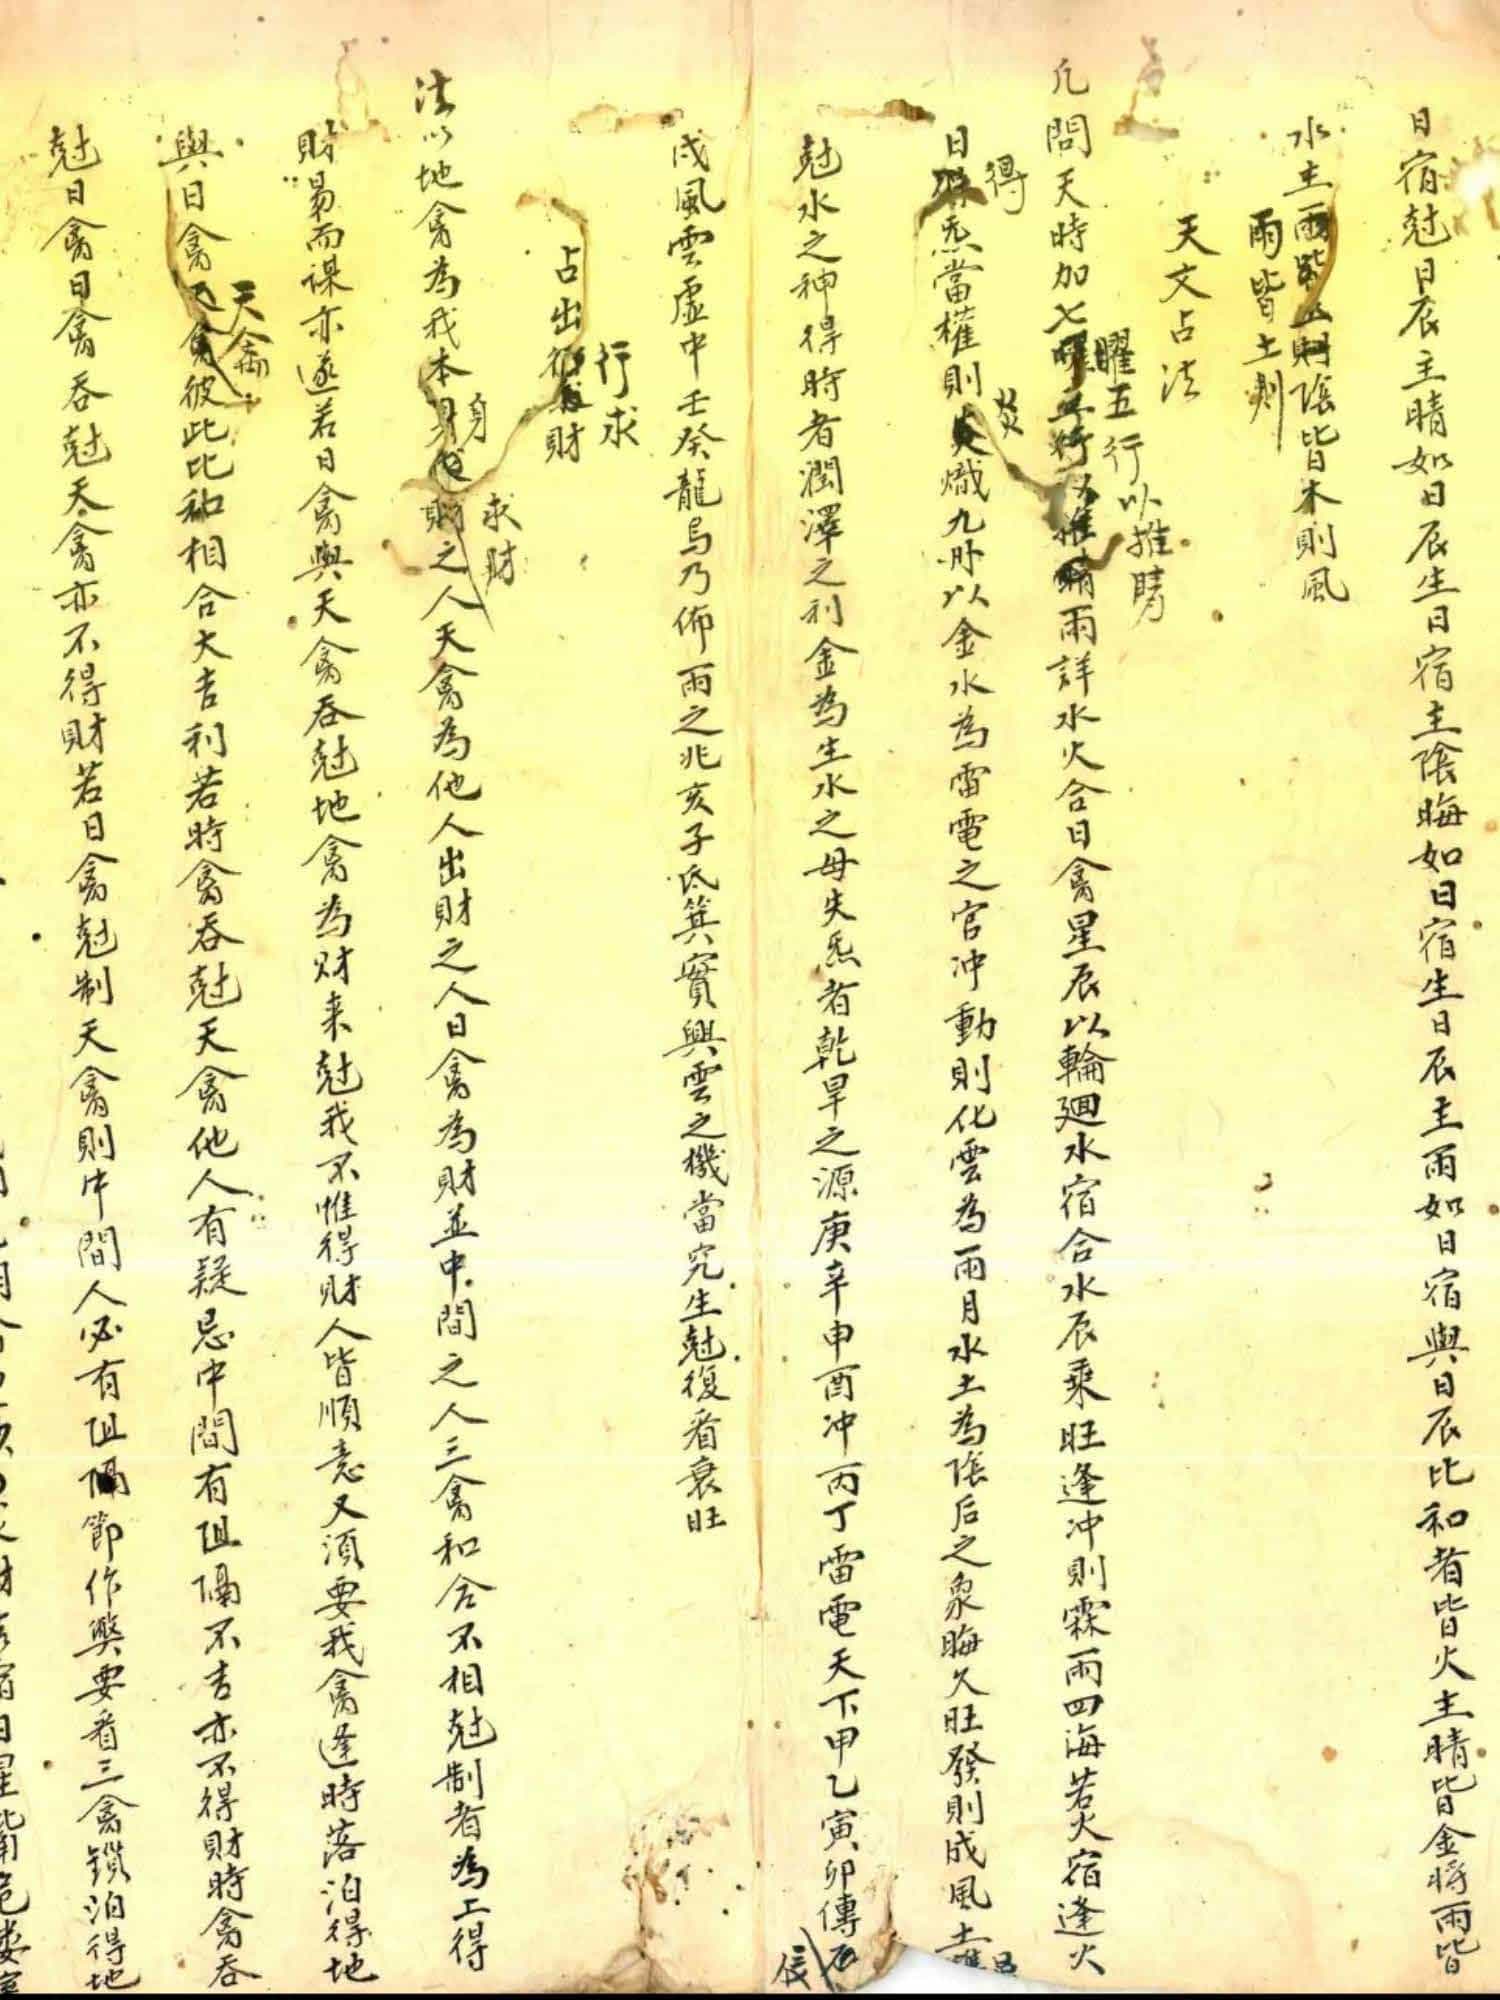 日宿尅日辰主晴如日辰生日宿主陰晦如日宿生日辰主雨如日宿與日辰比和者皆火主晴皆金將雨皆
水主雨皆土則陰皆木則風
雨皆土則
天文占法
凢問天時加七曜五行以推晴雨詳水火合日禽星辰以輪廻水宿合水辰乘旺逢冲則霖雨四海若火宿逢火
曜五行以推晴
日得炁當權則炎熾九州以金水為雷電之官冲動則化雲為雨月水土為陰后之象晦久旺發則成風土
得
炎
尅水之神得時者潤澤之利金為生水之母失炁者乾旱之源庚辛申酉冲丙丁雷電天下甲乙寅卯傳
辰
戌風雲虛中壬癸龍烏乃佈雨之兆亥子氐箕實興雲之機當究生尅復看衰旺
占出行求財
行求
法以地禽為我本身求財之人天禽為他人出財之人日禽為財並中間之人三禽和合不相尅制者為上得
身
求財
財易而謀亦遂若日禽與天禽吞尅地禽為財来尅我不惟得財人皆順意又須要我禽逢時落泊得地
與日禽天禽彼此比和相合大吉利若時禽吞尅天禽他人有疑忌中間有阻隔不吉亦不得財時禽吞
天禽
尅日禽日禽吞尅天禽亦不得財若日禽尅制天禽則中間人必有阻隔節作弊要看三禽鎖泊得地